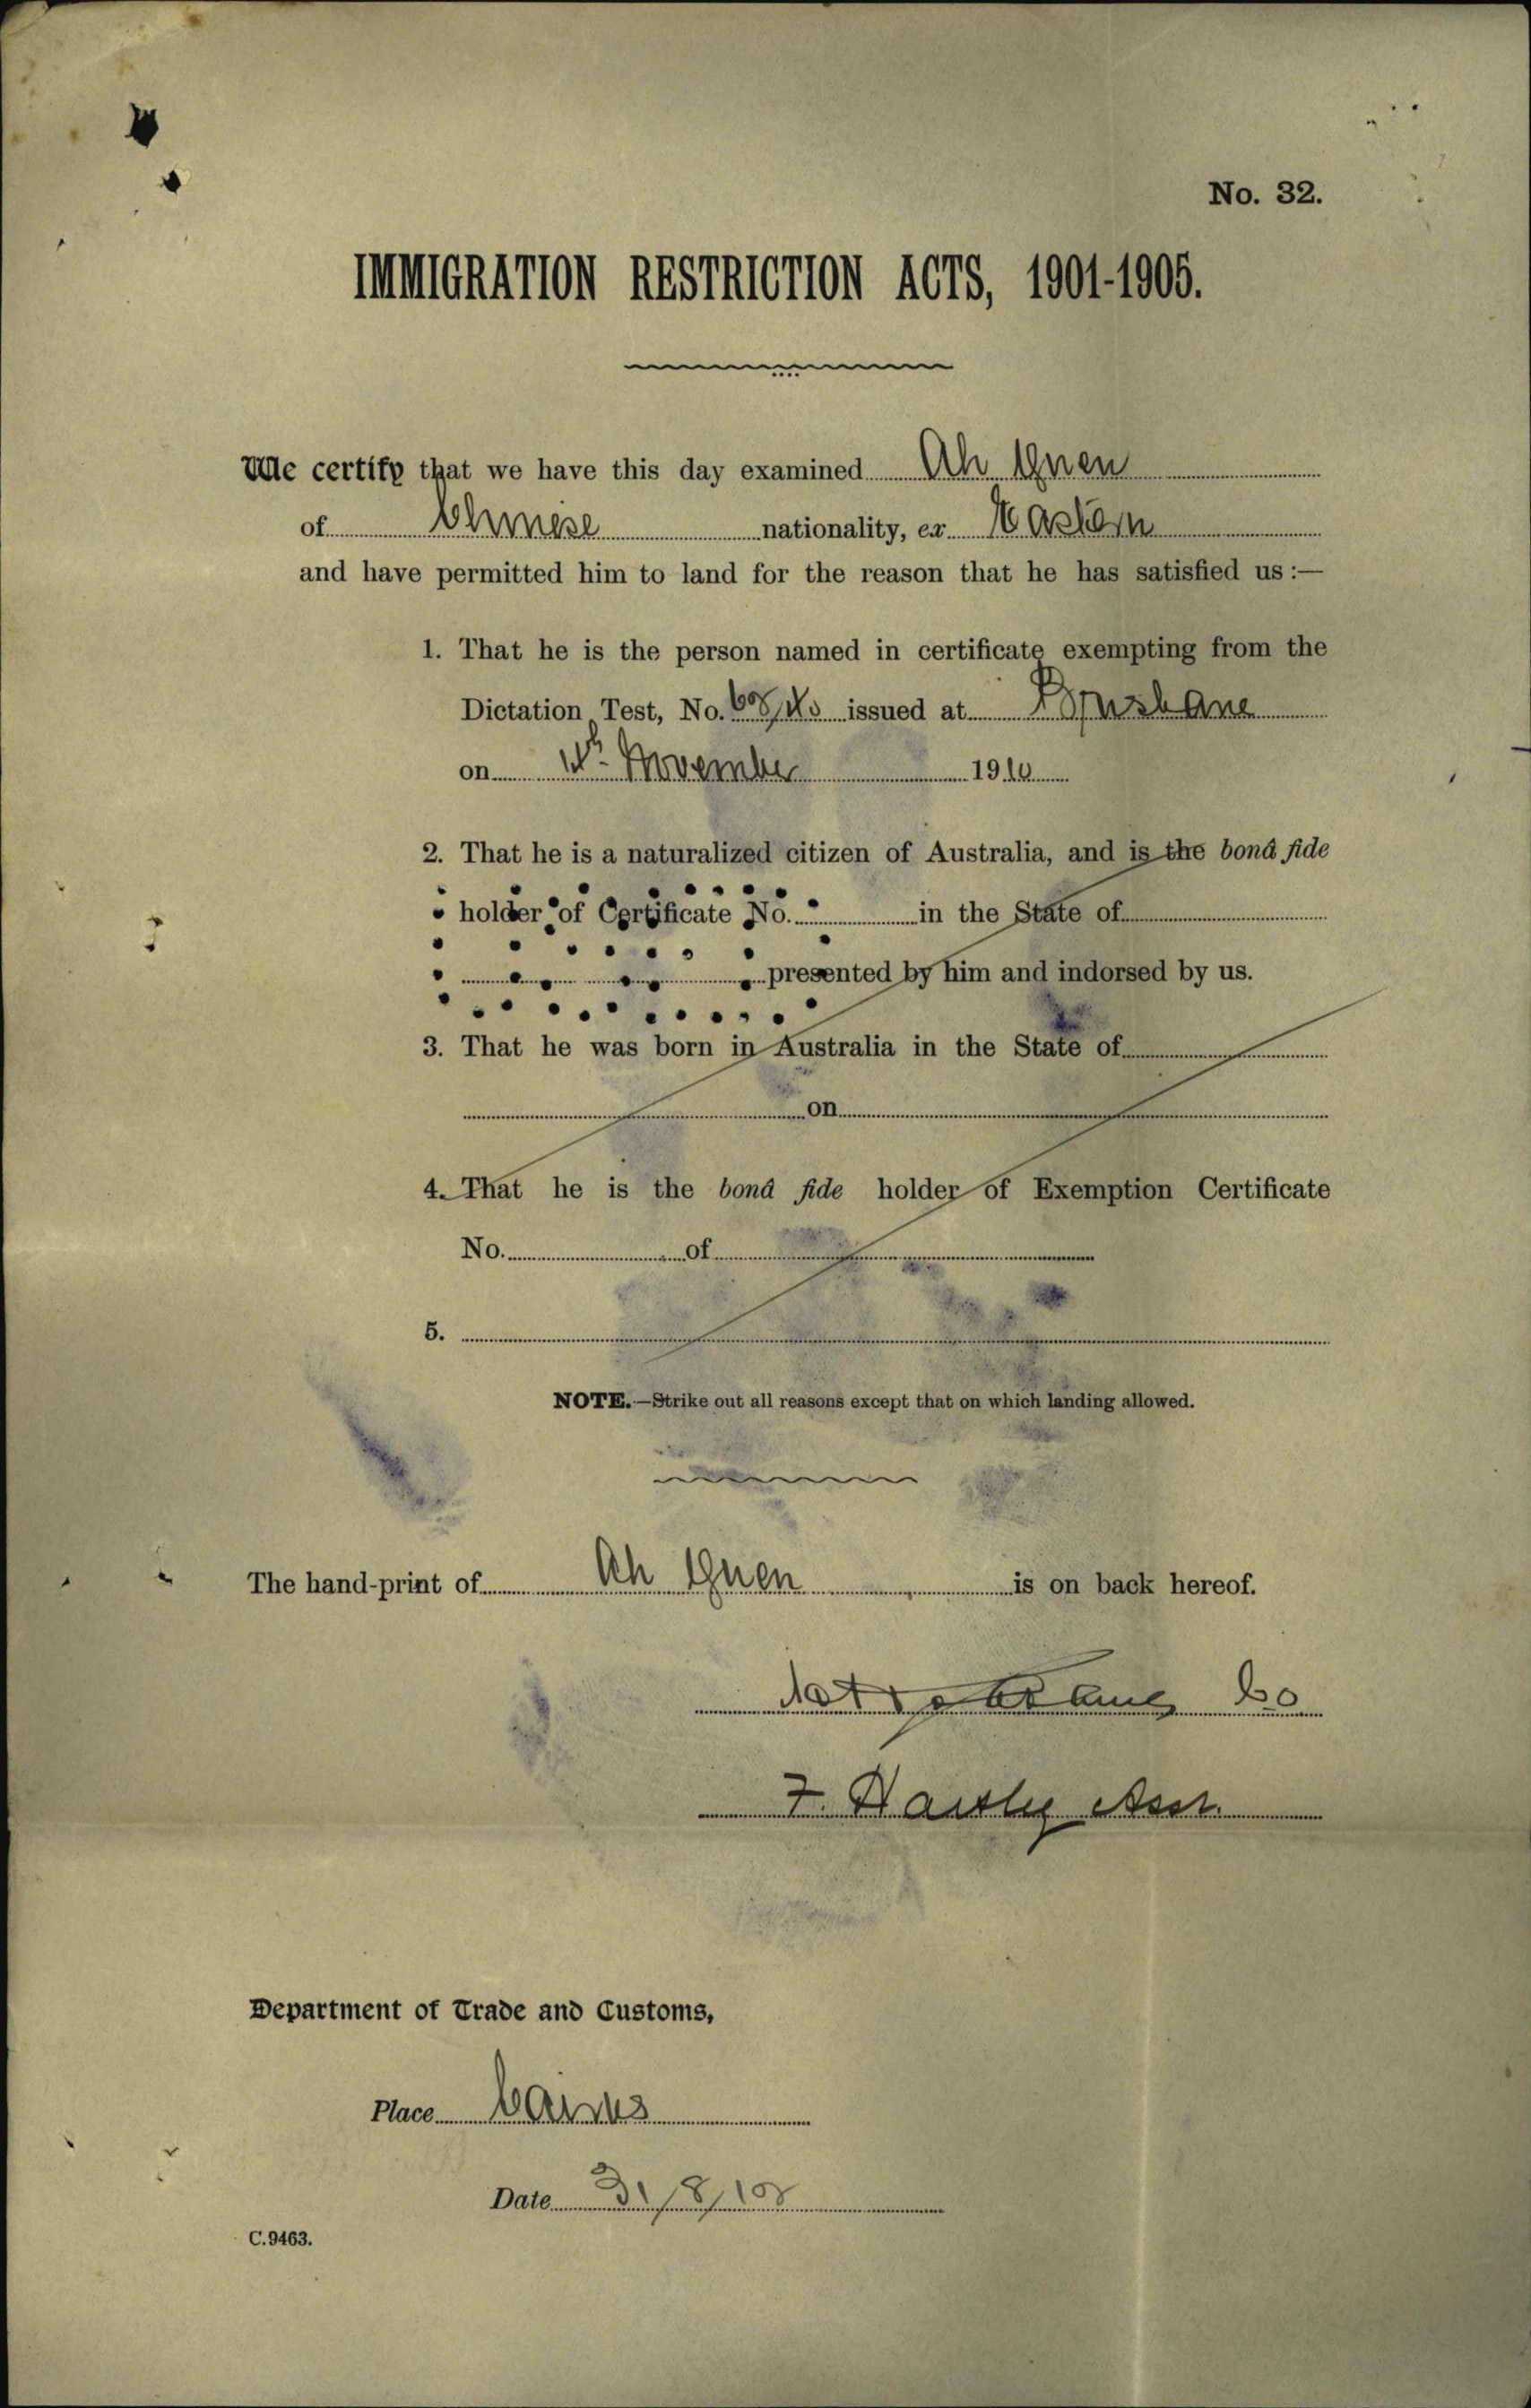 No. 32.
IMMIGRATION RESTRICTION ACTS, 1901-1905.
We certify that we have this day examined Ah Quen
of Chinese nationality, ex Eastern
and have permitted him to land for the reason that he has satisfied us :—
1. That he is the person named in certificate exempting from the
Dictation Test, No. issued at Brisbane
on November 1910
2. That he is a naturalized citizen of Australia, and is the bonâ fide
holder of Certificate No. in the State of
presented by him and indorsed by us.
3. That he was born in Australia in the State of
on
4. That he is the bonâ fide holder of Exemption Certificate
No. of
5.
NOTE.—Strike out all reasons except that on which landing allowed.
The hand-print of Ah Quen is on back hereof.
Co
F.
Department of Trade and Customs,
Place Cairns
Date 31/8/
C.9463.